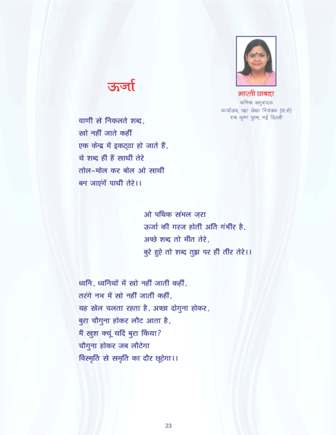 ऊर्जा
भारती छाबड़ा
वरिष्ठ अनुवादक
राम कृष्ण पुरम, नई दिल्ली
वाणी से निकलते शब्द,
खो नहीं जाते कहीं
एक केन्द्र में इकट्ठा हो जाते हैं,
ये शब्द ही हैं साथी तेरे
तोल-मोल कर बोल ओ साथी
बन जाएंगें पाथी तेरे।।
ओ पथिक संभल जरा
ऊर्जा की गरज होती अति गंभीर है,
अच्छे शब्द तो मीत तेरे,
बुरे हुऐ तो शब्द तुझ पर ही तीर तेरे।।
ध्वनि, ध्वनियों में खो नहीं जाती कहीं,
तरंगे नभ में सो नहीं जाती कहीं,
यह खेल चलता रहता है, अच्छा दोगुना होकर,
बुरा चौगुना होकर लौट आता है,
मैं खुश क्यूं यदि बुरा किया?
चौगुना होकर जब लौटेगा
विस्मृति से समृति का दौर छूटेगा।।
23